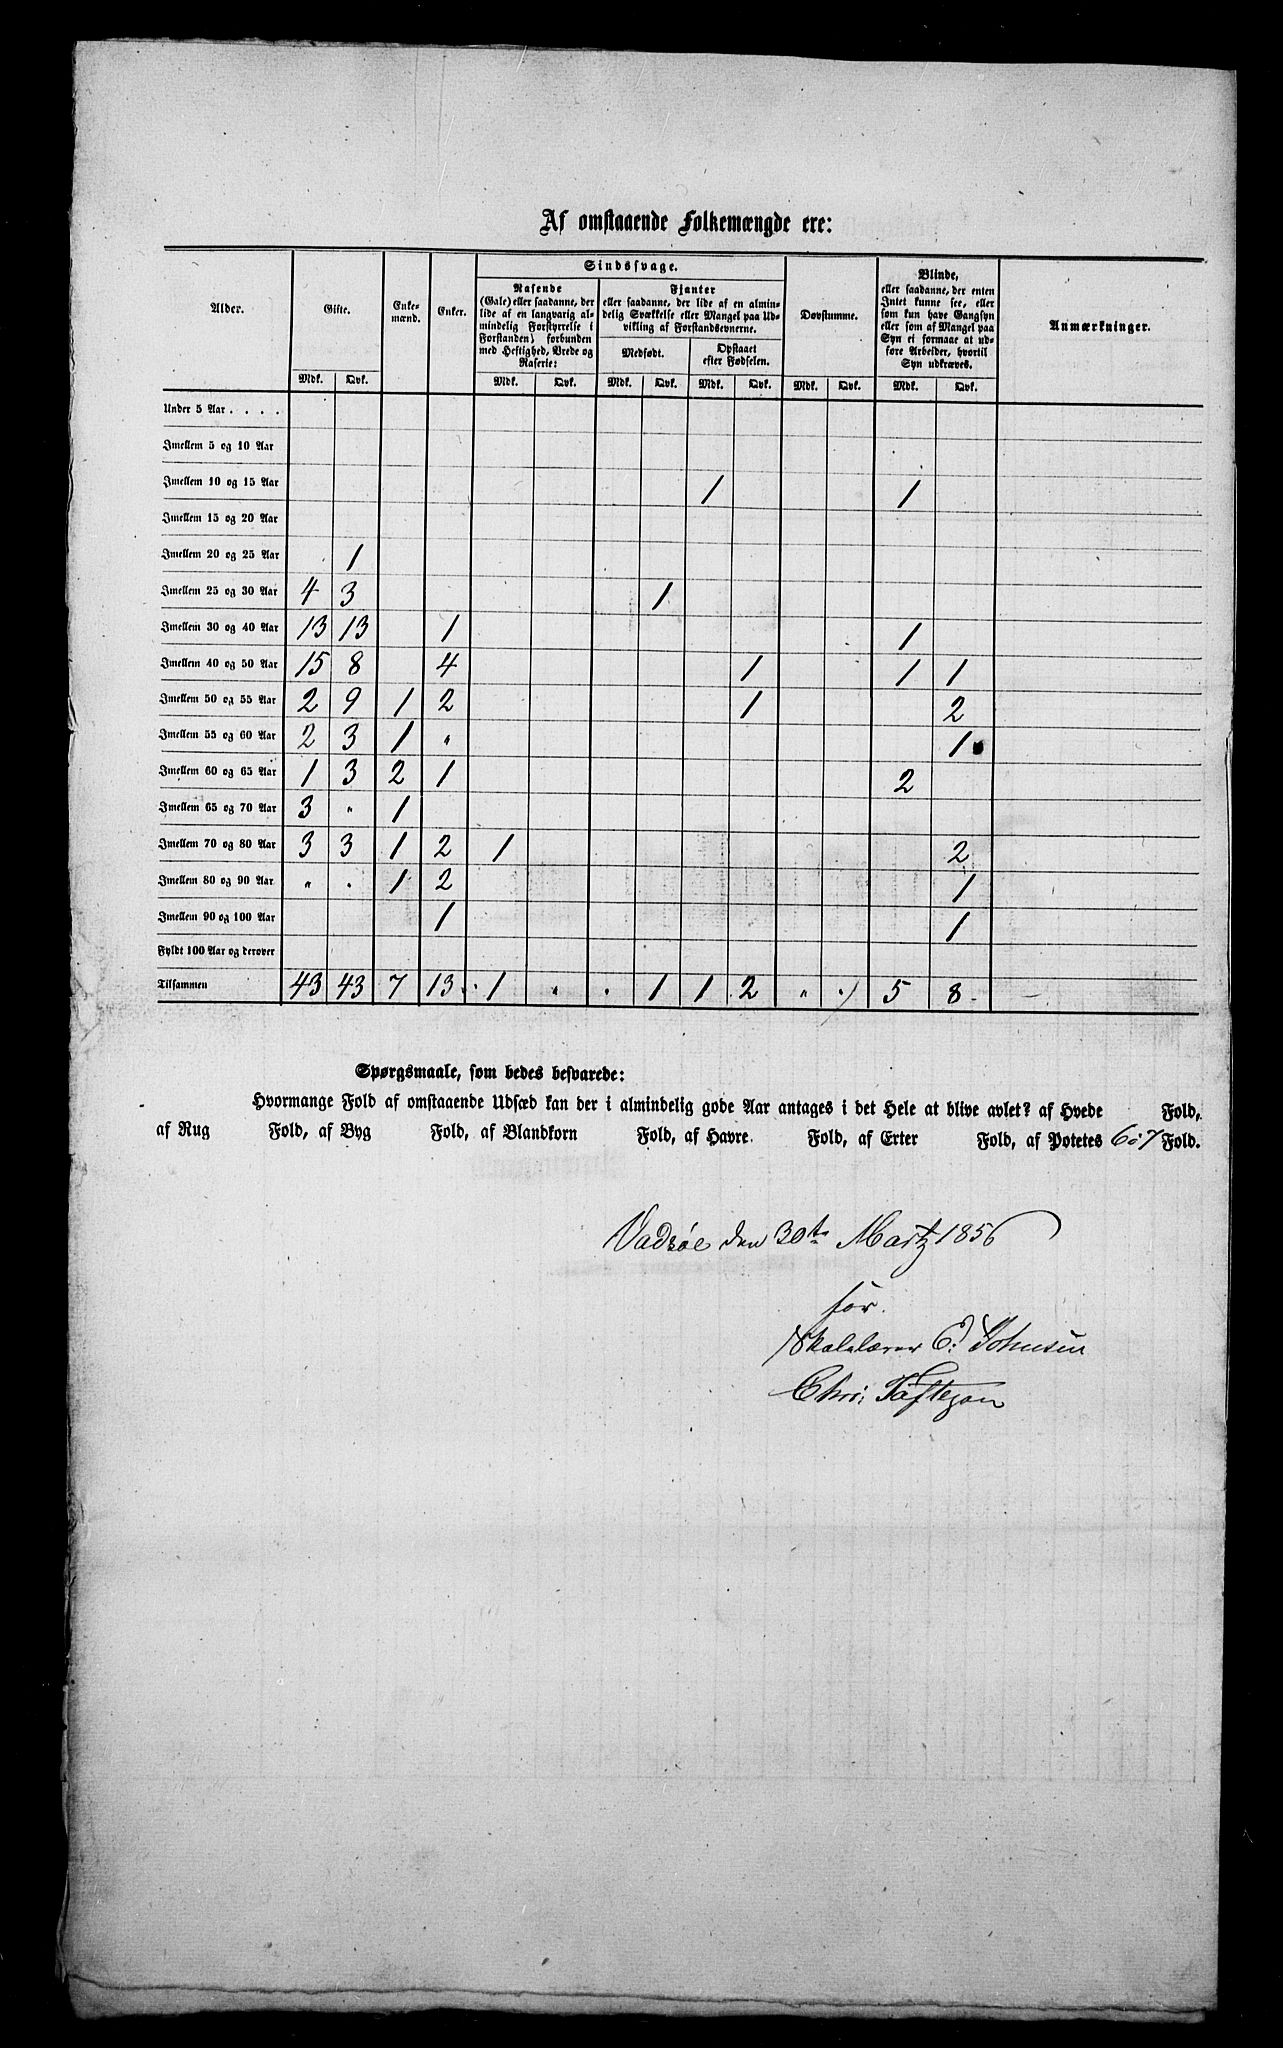 Af omstaaende Folkemængde ere:
Alder. Gifte. Enke- mænd. Enker. Sindssvage. Døvstumme. Blinde, Anmærkninger.
Rasende
(Gale) eller saadanne, der
lide af en langvarig al-
mindelig Forstyrrelse i
Forstanden) forbunden
med Heftighed, Vrede og
Raserie:
Fjanter
eller saadanne, der lide af en almin-
delig Svækkelse eller Mangel paa Ud-
vikling af Forstandsevnerne.
Medfødt. Opstaaet
efter Fødselen.
eller saadanne, der enten
Intet kunne see, eller
som kun have Gangsyn
eller som af Mangel paa
Syn ei formaae at ud-
føre Arbeider, hvortil
Syn udkræves.
Mdk. Qvk. Mdk. Qvk. Mdk. Qvk. Mdk. Qvk. Mdk. Qvk. Mdk. Qvk.
Under 5 Aar . . . .
Imellem 5 og 10 Aar
Imellem 10 og 15 Aar 1 1
Imellem 15 og 20 Aar
Imellem 20 og 25 Aar 1
Imellem 25 og 30 Aar 4 3 1
Imellem 30 og 40 Aar 13 13 1 1
Imellem 40 og 50 Aar 15 8 4 1 1 1
Imellem 50 og 55 Aar 2 9 1 2 1 2
Imellem 55 og 60 Aar 2 3 1 " 1
Imellem 60 og 65 Aar 1 3 2 1 2
Imellem 65 og 70 Aar 3 " 1
Imellem 70 og 80 Aar 3 3 1 2 1 2
Imellem 80 og 90 Aar " . 1 2 1
Imellem 90 og 100 Aar 1 1
Fyldt 100 Aar og derover
Tilsammen 43 43 7 13 1 " . 1 1 2 " " 5 8
Spørgsmaale, som bedes besvarede:
Hvormange Fold af omstaaende Udsæd kan der i almindelig gode Aar antages i det Hele at blive avlet? af Hvede Fold,
af Rug Fold, af Byg Fold, af Blandkorn Fold, af Havre Fold, af Erter Fold, af Potetes 6 à 7 Fold.
Vadsøe den 30te Martz 1856
for
Skolelærer E. Johnsen
Chr: